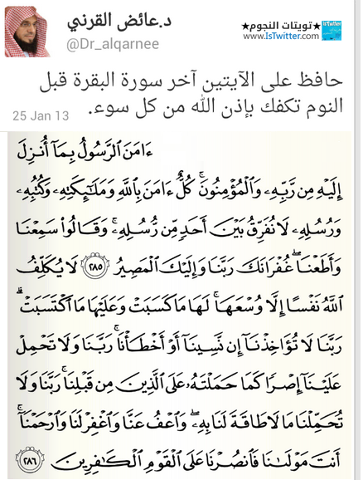 د.عائض القرني
@Dr_alqarnee
★تويتات النجوم★
www.IsTwitter.com
حافظ على الآيتين آخر سورة البقرة قبل
النوم تكفك بإذن الله من كل سوء.
25 Jan 13
ءَامَنَ ٱلرَّسُولُ بِمَآ أُنزِلَ
إِلَيْهِ مِن رَّبِّهِۦ وَٱلْمُؤْمِنُونَۚ كُلٌّ ءَامَنَ بِٱللَّهِ وَمَلَـٰٓئِكَتِهِۦ وَكُتُبِهِۦ
وَرُسُلِهِۦ لَا نُفَرِّقُ بَيْنَ أَحَدٍ مِّن رُّسُلِهِۦۚ وَقَالُوا۟ سَمِعْنَا
وَأَطَعْنَاۖ غُفْرَانَكَ رَبَّنَا وَإِلَيْكَ ٱلْمَصِيرُ ٢٨٥ لَا يُكَلِّفُ
ٱللَّهُ نَفْسًا إِلَّا وُسْعَهَاۚ لَهَا مَا كَسَبَتْ وَعَلَيْهَا مَا ٱكْتَسَبَتْۗ
رَبَّنَا لَا تُؤَاخِذْنَآ إِن نَّسِينَآ أَوْ أَخْطَأْنَاۚ رَبَّنَا وَلَا تَحْمِلْ
عَلَيْنَآ إِصْرًا كَمَا حَمَلْتَهُۥ عَلَى ٱلَّذِينَ مِن قَبْلِنَاۚ رَبَّنَا وَلَا
تُحَمِّلْنَا مَا لَا طَاقَةَ لَنَا بِهِۦۖ وَٱعْفُ عَنَّا وَٱغْفِرْ لَنَا وَٱرْحَمْنَآۚ
أَنتَ مَوْلَىٰنَا فَٱنصُرْنَا عَلَى ٱلْقَوْمِ ٱلْكَـٰفِرِينَ ٢٨٦